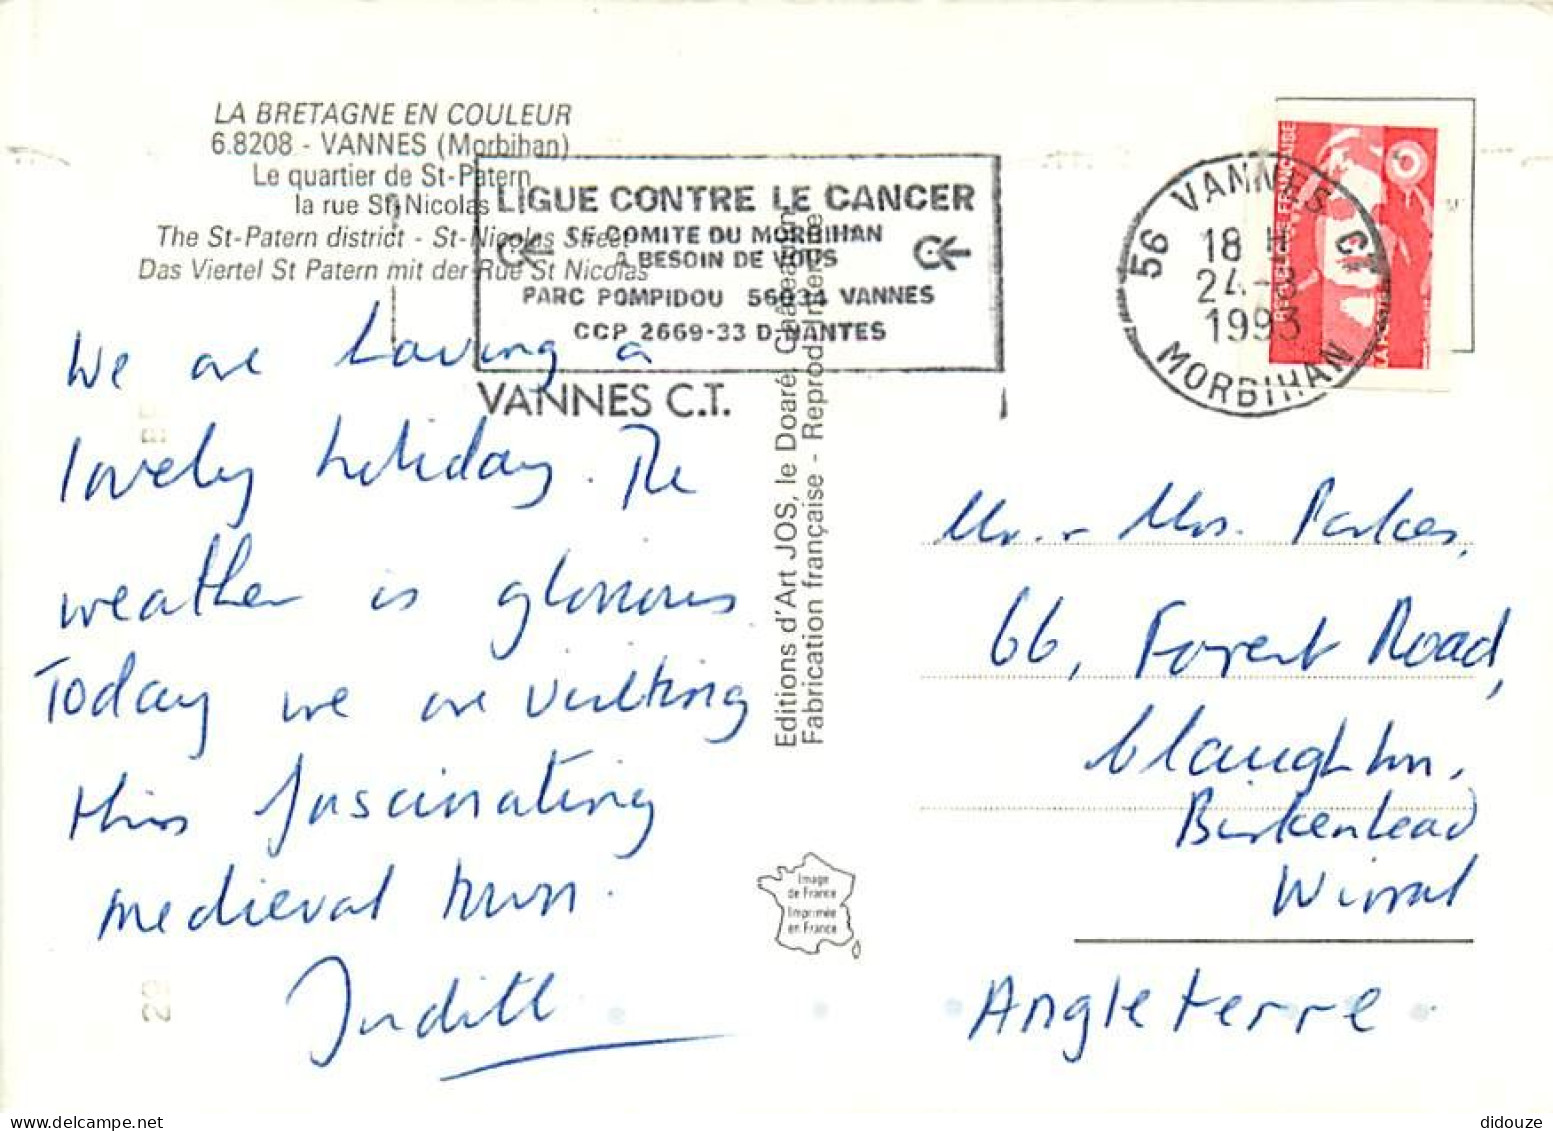 LA BRETAGNE EN COULEUR
6.8208 - VANNES (Morbihan)
Le quartier de St-Patern
la rue St-Nicolas
The St-Patern district - St-Nicolas Street
Das Viertel St Patern mit der Rue St Nicolas
LIGUE CONTRE LE CANCER
COMITE DU MORBIHAN
A BESOIN DE VOUS
PARC POMPIDOU 56034 VANNES
CCP 2669-33 D-NANTES
VANNES C.T.
56 VANNES CT
18 H
24-8
1993
MORBIHAN
REPUBLIQUE FRANÇAISE
LA POSTE
We are having a
lovely holiday. The
weather is glorious
Today we are visiting
this fascinating
medieval town.
Judith
Editions d'Art JOS, le Doaré, Châteaulin
Fabrication française - Reprod. Interdite
Image
de France
Imprimée
en France
Mr. - Mrs. Parkes,
66, Forest Road,
Claughton,
Birkenhead
Wirral
Angleterre
didouze